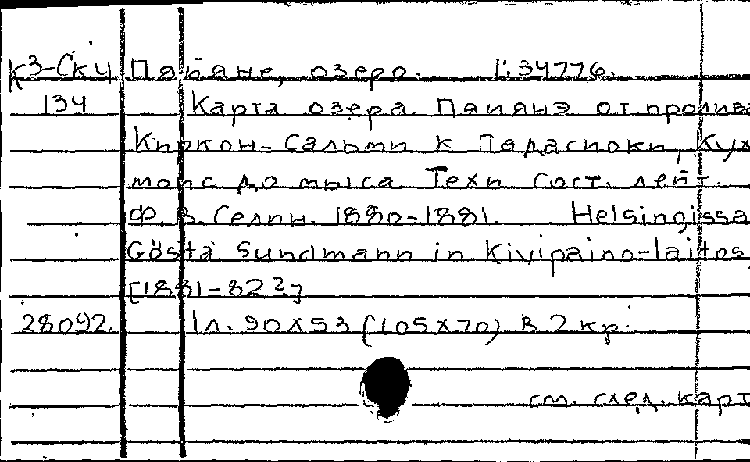 К3-Ск4 Пяйяне, озеро. 1:34776.
134 Карта озера Пяйянэ от пролива
Киркон-Сальми к Падасиоки, Кух
мойс до мыса Техи Сост. лейт.
Ф.В. Селин. 1880-1881. Helsingissa
Gösta Sundmann in Kivipaino-laitos
[1881-82?]
28092. 1л. 90х53 (105х70) в 2 кр.
см. след. карт